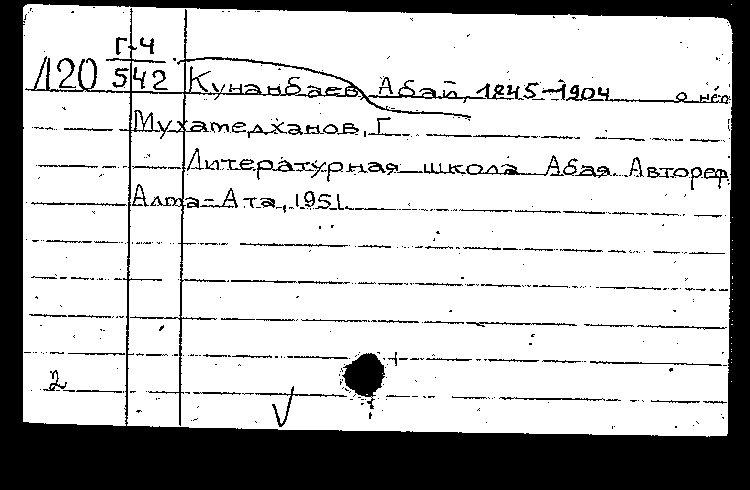 Г-4
120 542 Кунанбаев, Абай, 1845-1904 о нем
Мухамедханов, Г.
Литературная школа Абая. Автореф.
Алма-Ата, 1951.
2